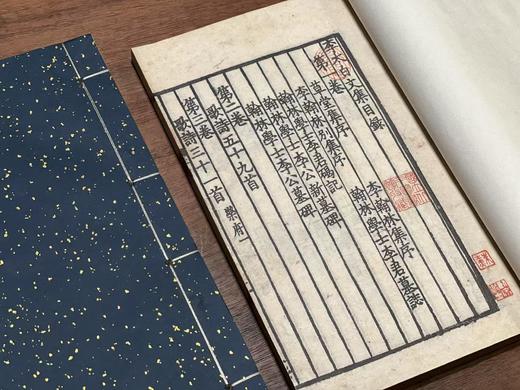 李太白文集目錄
第一卷
草堂集序
李翰林集序
李翰林別集序
翰林學士李君墓誌
李翰林學士李君碣記
翰林學士李公新墓碑
翰林學士李公墓碑
第二卷
歌詩五十九首
第三卷
歌詩三十一首 樂府一